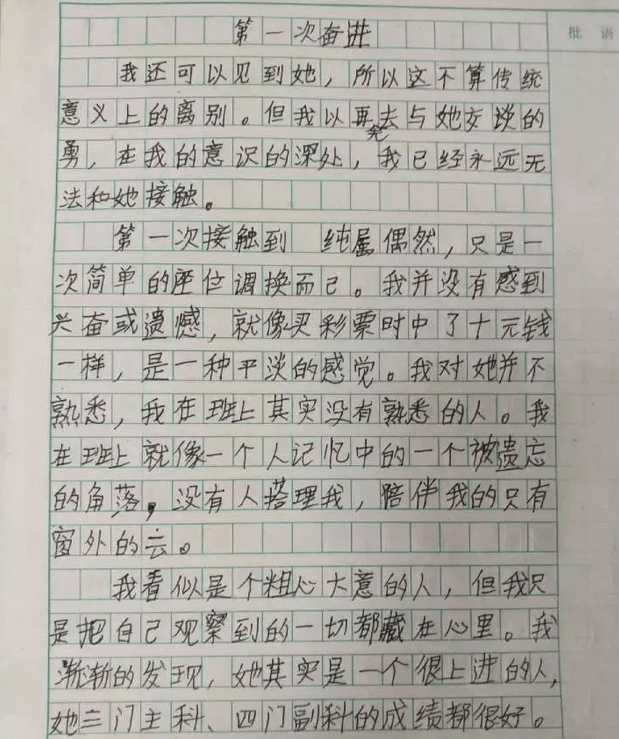 第一次奋进
批语
我还可以见到她，所以这不算传统
意义上的离别。但我以再无去与她交谈的
勇，在我的意识的深处，我已经永远无
法和她接触。
第一次接触到 纯属偶然，只是一
次简单的座位调换而已。我并没有感到
兴奋或遗憾，就像买彩票时中了十元钱
一样，是一种平淡的感觉。我对她并不
熟悉，我在班上其实没有熟悉的人。我
在班上就像一个人记忆中的一个被遗忘
的角落，没有人搭理我，陪伴我的只有
窗外的云。
我看似是个粗心大意的人，但我只
是把自己观察到的一切都藏在心里。我
渐渐的发现，她其实是一个很上进的人，
她三门主科、四门副科的成绩都很好。